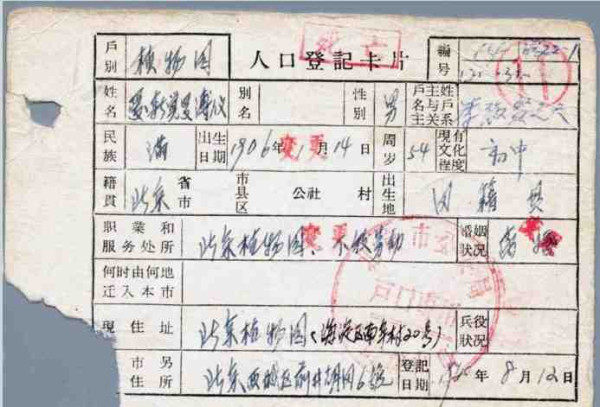 死亡
戶別 植物园 人口登記卡片 編号
11
姓名 爱新觉罗溥仪 別名 性別 男 戶主姓名与戶主关系
民族 满 出生日期 1906年1月14日 变更 周岁 54 現有文化程度 初中
籍貫 北京 省市 市县区 公社 村 出生地 同籍贯
职業和服务处所 北京植物园 变更 婚姻状况 变更
何时由何地迁入本市
現住址 北京植物园(海淀区南辛村20号) 兵役状况
市另住所 北京西城区前井胡同6号 登記日期 年8月12日